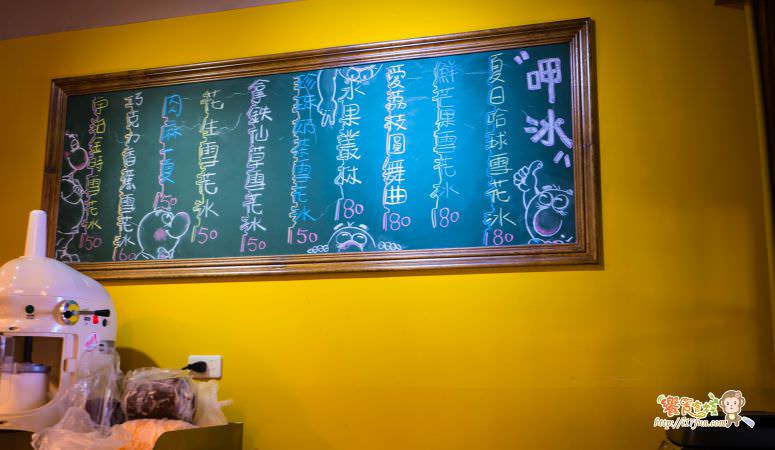 呷冰
夏日哈球雪花冰 180
鮮芒果雪花冰 180
愛荔枝圓舞曲 180
水果叢林 180
珍珠奶茶雪花冰 150
拿鐵仙草雪花冰 150
花生雪花冰 150
肉麻一夏 150
巧克力香蕉雪花冰 160
宇治金時雪花冰 150
http://i17fun.com